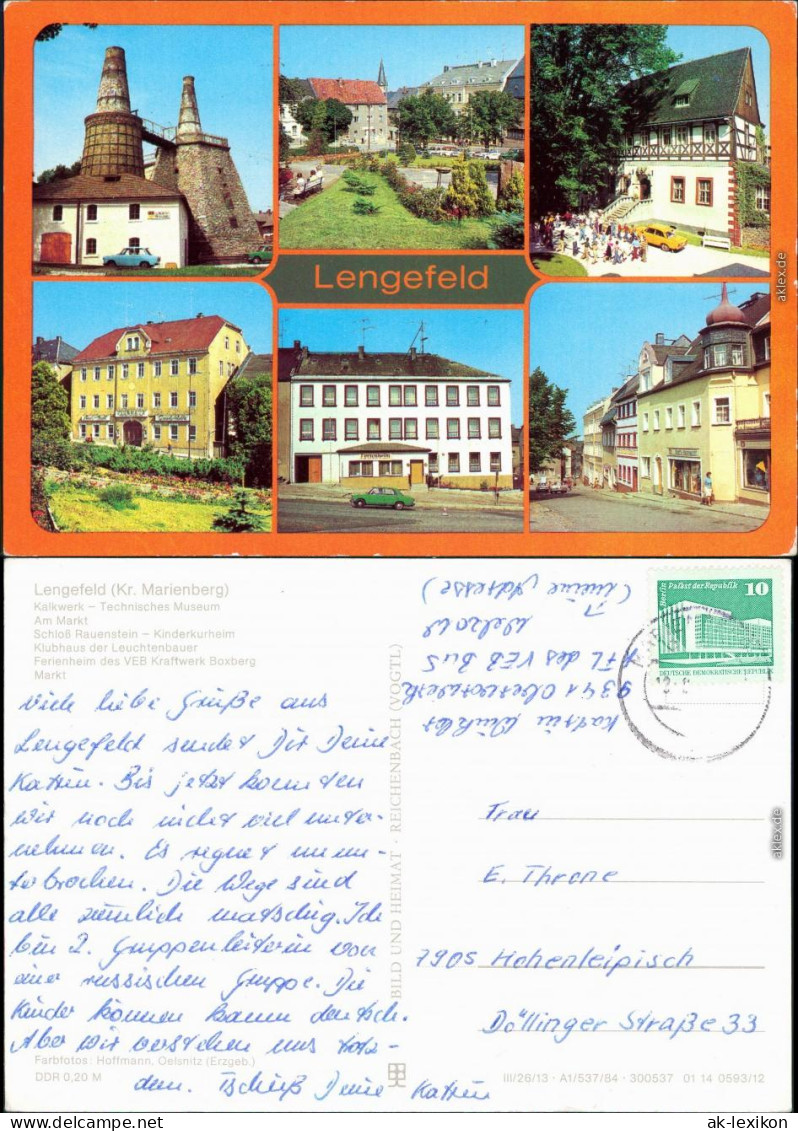 Lengefeld
Ferienheim
aklex.de
Lengefeld (Kr. Marienberg)
Kalkwerk – Technisches Museum
Am Markt
Schloß Rauenstein – Kinderkurheim
Klubhaus der Leuchtenbauer
Ferienheim des VEB Kraftwerk Boxberg
Markt
Viele liebe Grüße aus
Lengefeld sendet Dir Deine
Katrin. Bis jetzt konnten
wir noch nicht viel unter-
nehmen. Es regnet unun-
terbrochen. Die Wege sind
alle ziemlich matschig. Ich
bin 2. Gruppenleiterin von
einer russischen Gruppe. Die
Kinder können kaum deutsch.
Aber wir verstehen uns trotz-
dem. Tschüß Deine Katrin
Farbfotos: Hoffmann, Oelsnitz (Erzgeb.)
DDR 0,20 M
BILD UND HEIMAT · REICHENBACH (VOGTL)
Katrin
9341 Obervorwerk
des VEB BuS
Welzow
(meine Adresse)
Berlin Palast der Republik 10
DEUTSCHE DEMOKRATISCHE REPUBLIK
Frau
E. Throne
7905 Hohenleipisch
Döllinger Straße 33
aklex.de
III/26/13 · A1/537/84 · 300537 01 14 0593/12
www.ansichtskarten-lexikon.de
ak-lexikon